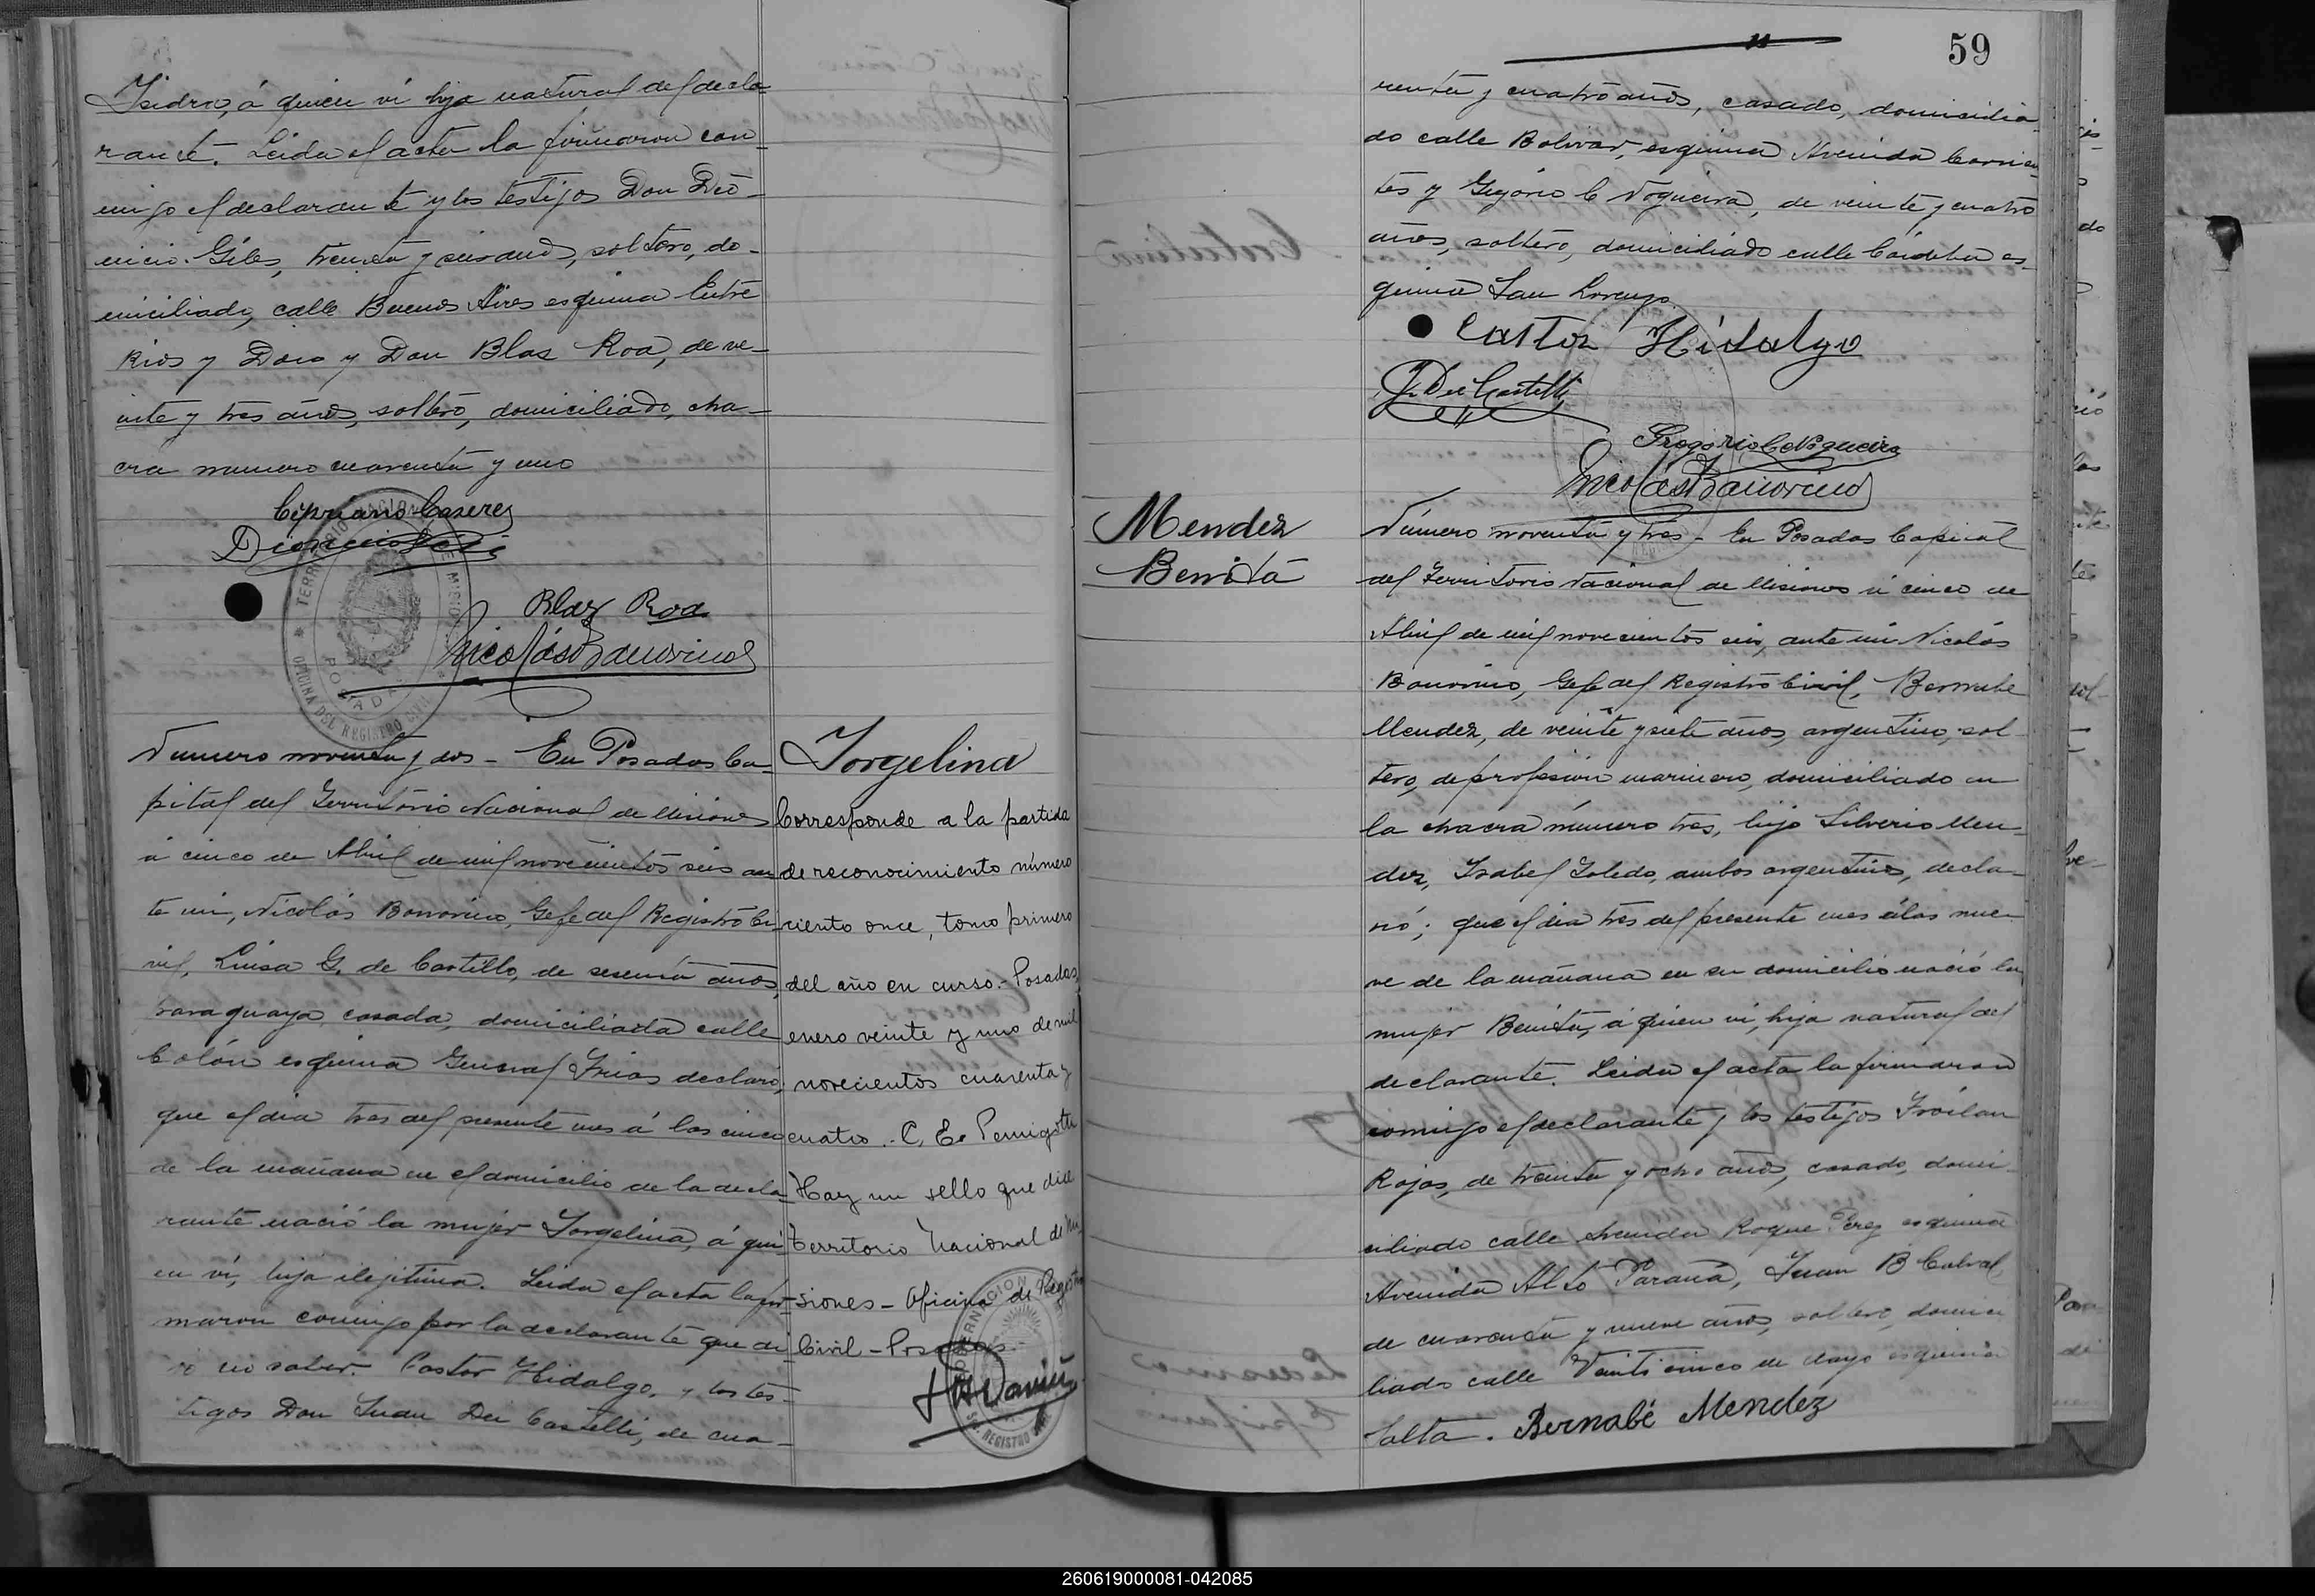 Isidro, á quien ví hijo natural del decla-
rante. Leida el acta la firmaron con-
migo el declarante y los testigos Don Dio-
nicio Giles, treinta y seis años, soltero, do-
miciliado, calle Buenos Aires esquina Entre
Rios y Don y Don Blas Roa, de ve-
inte y tres años, soltero, domiciliado, cha-
cra numero cuarenta y uno
Cipriano Caseres
Blas Roa
Nicolás Bonorino
Número noventa y dos - En Posadas Ca-
pital del Territorio Nacional de Misiones
á cinco de Abril de mil novecientos seis an-
te mi, Nicolás Bonorino, Gefe del Registro Ci-
vil, Luisa G. de Castillo, de sesenta años,
paraguaya, casada, domiciliada calle
Colón esquina General Frias declaró;
que el dia tres del presente mes á las cinco
de la mañana en el domicilio de la decla-
rante nació la mujer Jorgelina, á qui-
en ví, hija ilegitima. Leida el acta la fir-
maron conmigo por la declarante que di-
jo no saber. Castor Hidalgo, y los tes-
tigos Don Juan Dei Castelli, de cua-
Jorgelina
Corresponde a la partida
de reconocimiento número
ciento once, tomo primero
del año en curso.- Posadas,
enero veinte y uno de mil
novecientos cuarenta y
cuatro.- C. E. Pernigotti
Hay un sello que dice
Territorio Nacional de Mi-
siones - Oficina de Registro
Civil - Posadas.
59
renta y cuatro años, casado, domicilia-
do calle Bolivar, esquina Avenida Corrien-
tes y Gregorio C Nogueira, de veinte y cuatro
años, soltero, domiciliado calle Córdoba es-
quina San Lorenzo
Castor Hidalgo
J. Dei Castelli
Gregorio C Nogueira
Nicolás Bonorino
Mendez
Benita
Número noventa y tres - En Posadas Capital
del Territorio Nacional de Misiones á cinco de
Abril de mil novecientos seis, ante mi Nicolás
Bonorino, Gefe del Registro Civil, Bernabe
Mendez, de veinte y siete años, argentino, sol-
tero, de profesion marinero, domiciliado en
la chacra número tres, hijo Silverio Men-
dez, Isabel Toledo, ambos argentinos, decla-
ró; que el dia tres del presente mes á las nue-
ve de la mañana en su domicilio nació la
mujer Benita, á quien ví, hija natural del
declarante. Leida el acta la firmaron
conmigo el declarante y los testigos Froilan
Rojas, de treinta y ocho años, casado, domi-
ciliado calle Avenida Roque Perez esquina
Avenida Alto Paraná, Juan B Cabral
de cuarenta y nueve años, soltero, domici-
liado calle Veinticinco de Mayo esquina
Salta. Bernabé Mendez
260619000081-042085